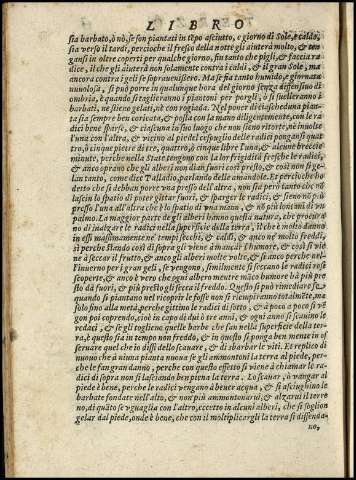 LIBRO
sia barbato, ò nò, se son piantati in tẽpo asciutto, e giorno di Sole, e caldo,
sia verso il tardi, percioche il fresco della notte gli aiuterà molto, & ten
gansi in oltre coperti per qualche giorno, fin tanto che pigli, & faccia ra
dice, il che gli aiuterà non solamente contra i caldi, & il gran Sole, ma
ancora contra i geli se soprauenissero. Ma se sia tanto humido, e giornata
nuuolosa, si può porre in qualunque hora del giorno senza
ombria, è quando si taglieranno i piantoni per porgli, ò si suelleranno i
barbati, ne sieno gelati, nè con rogiada. Nel poner di ciascheduna pian-
ta sia sempre ben coricata, & posta con la mano diligentemente, con le ra
dici bene sparse, & ciascuna in suo luogo che non sieno ritorte, nè inuolte
l'una con l'altra, & vicino al piè del cespuglio delle radici pongansi quat
tro, ò cinque pietre di tre, quattro, ò cinque libre l'una, & alcune breccie
minute, perche nella State tengono con la lor frigidità fresche le radici,
& anco oprano che gli alberi non dian fuori così presto, & così non si ge-
lan tanto, come dice Palladio, parlando delle amandole. Et perche ho
detto che si debban porre vna presso dell'altra, non sia però tanto che nō
lascin lo spatio di poter gittar fuori, & sparger le radici, & sieno nō più
presso l'una all'altra che lo spatio di vna mano, & nō più lontani di vn
palmo. La maggior parte de gli alberi hanno questa natura, che procura
no di inalzare le radici nella superficie della terra, il che è molto danno
in essi massimamente ne' tempi secchi, & caldi, & anco ne' molto freddi,
si perche stando così di sopra gli viene à mancar l'humore, & così si vie
ne à seccar il frutto, & anco gli alberi molte volte, & si anco perche nel-
l'inuerno per i gran geli, se vengono, similmente si seccano le radici cosi
scoperte, & anco è vero che ogni albero mentre māco humore hà più pre
sto dà fuori, & più presto gli secca il freddo. Questo si può rimediare se
quando si piantano nel ricoprir le fosse non si riempiranno totalmẽte, ma
solo sino alla metà, perche gittino le radici di sotto, & à poco à poco si và
pon poi coprendo, cioè in capo di dui ò tre anni, & ogni anno si scauino le
radici, & se gli toglieno quelle barbe che san nella superficie della ter-
ra, è questo sia in tempo non freddo, & in questo si ponga ben mente in os
seruare quel che io dissi dello scauare, & di sbarbar le viti. Et replico di
nuouo che à niuna pianta nuoua se gli ammontoni la terra al piede, per-
che le fan gran danno, perche con questo effetto si viene à chiamar le ra-
dici di sopra non si lasciando ben piena la terra. Lo scauar, ò vangar al
piede è bene, perche le radici vengono à beuer acqua, & si asciughino le
barbate fondate nell'alto, & non più ammontonarui, & alzarui il terre
no, di quāto se vguaglia con l'altro, eccetto in alcuni alberi, che si soglion
gelar dal piede, onde è bene, che con il moltiplicargli la terra si diffenda-
no,